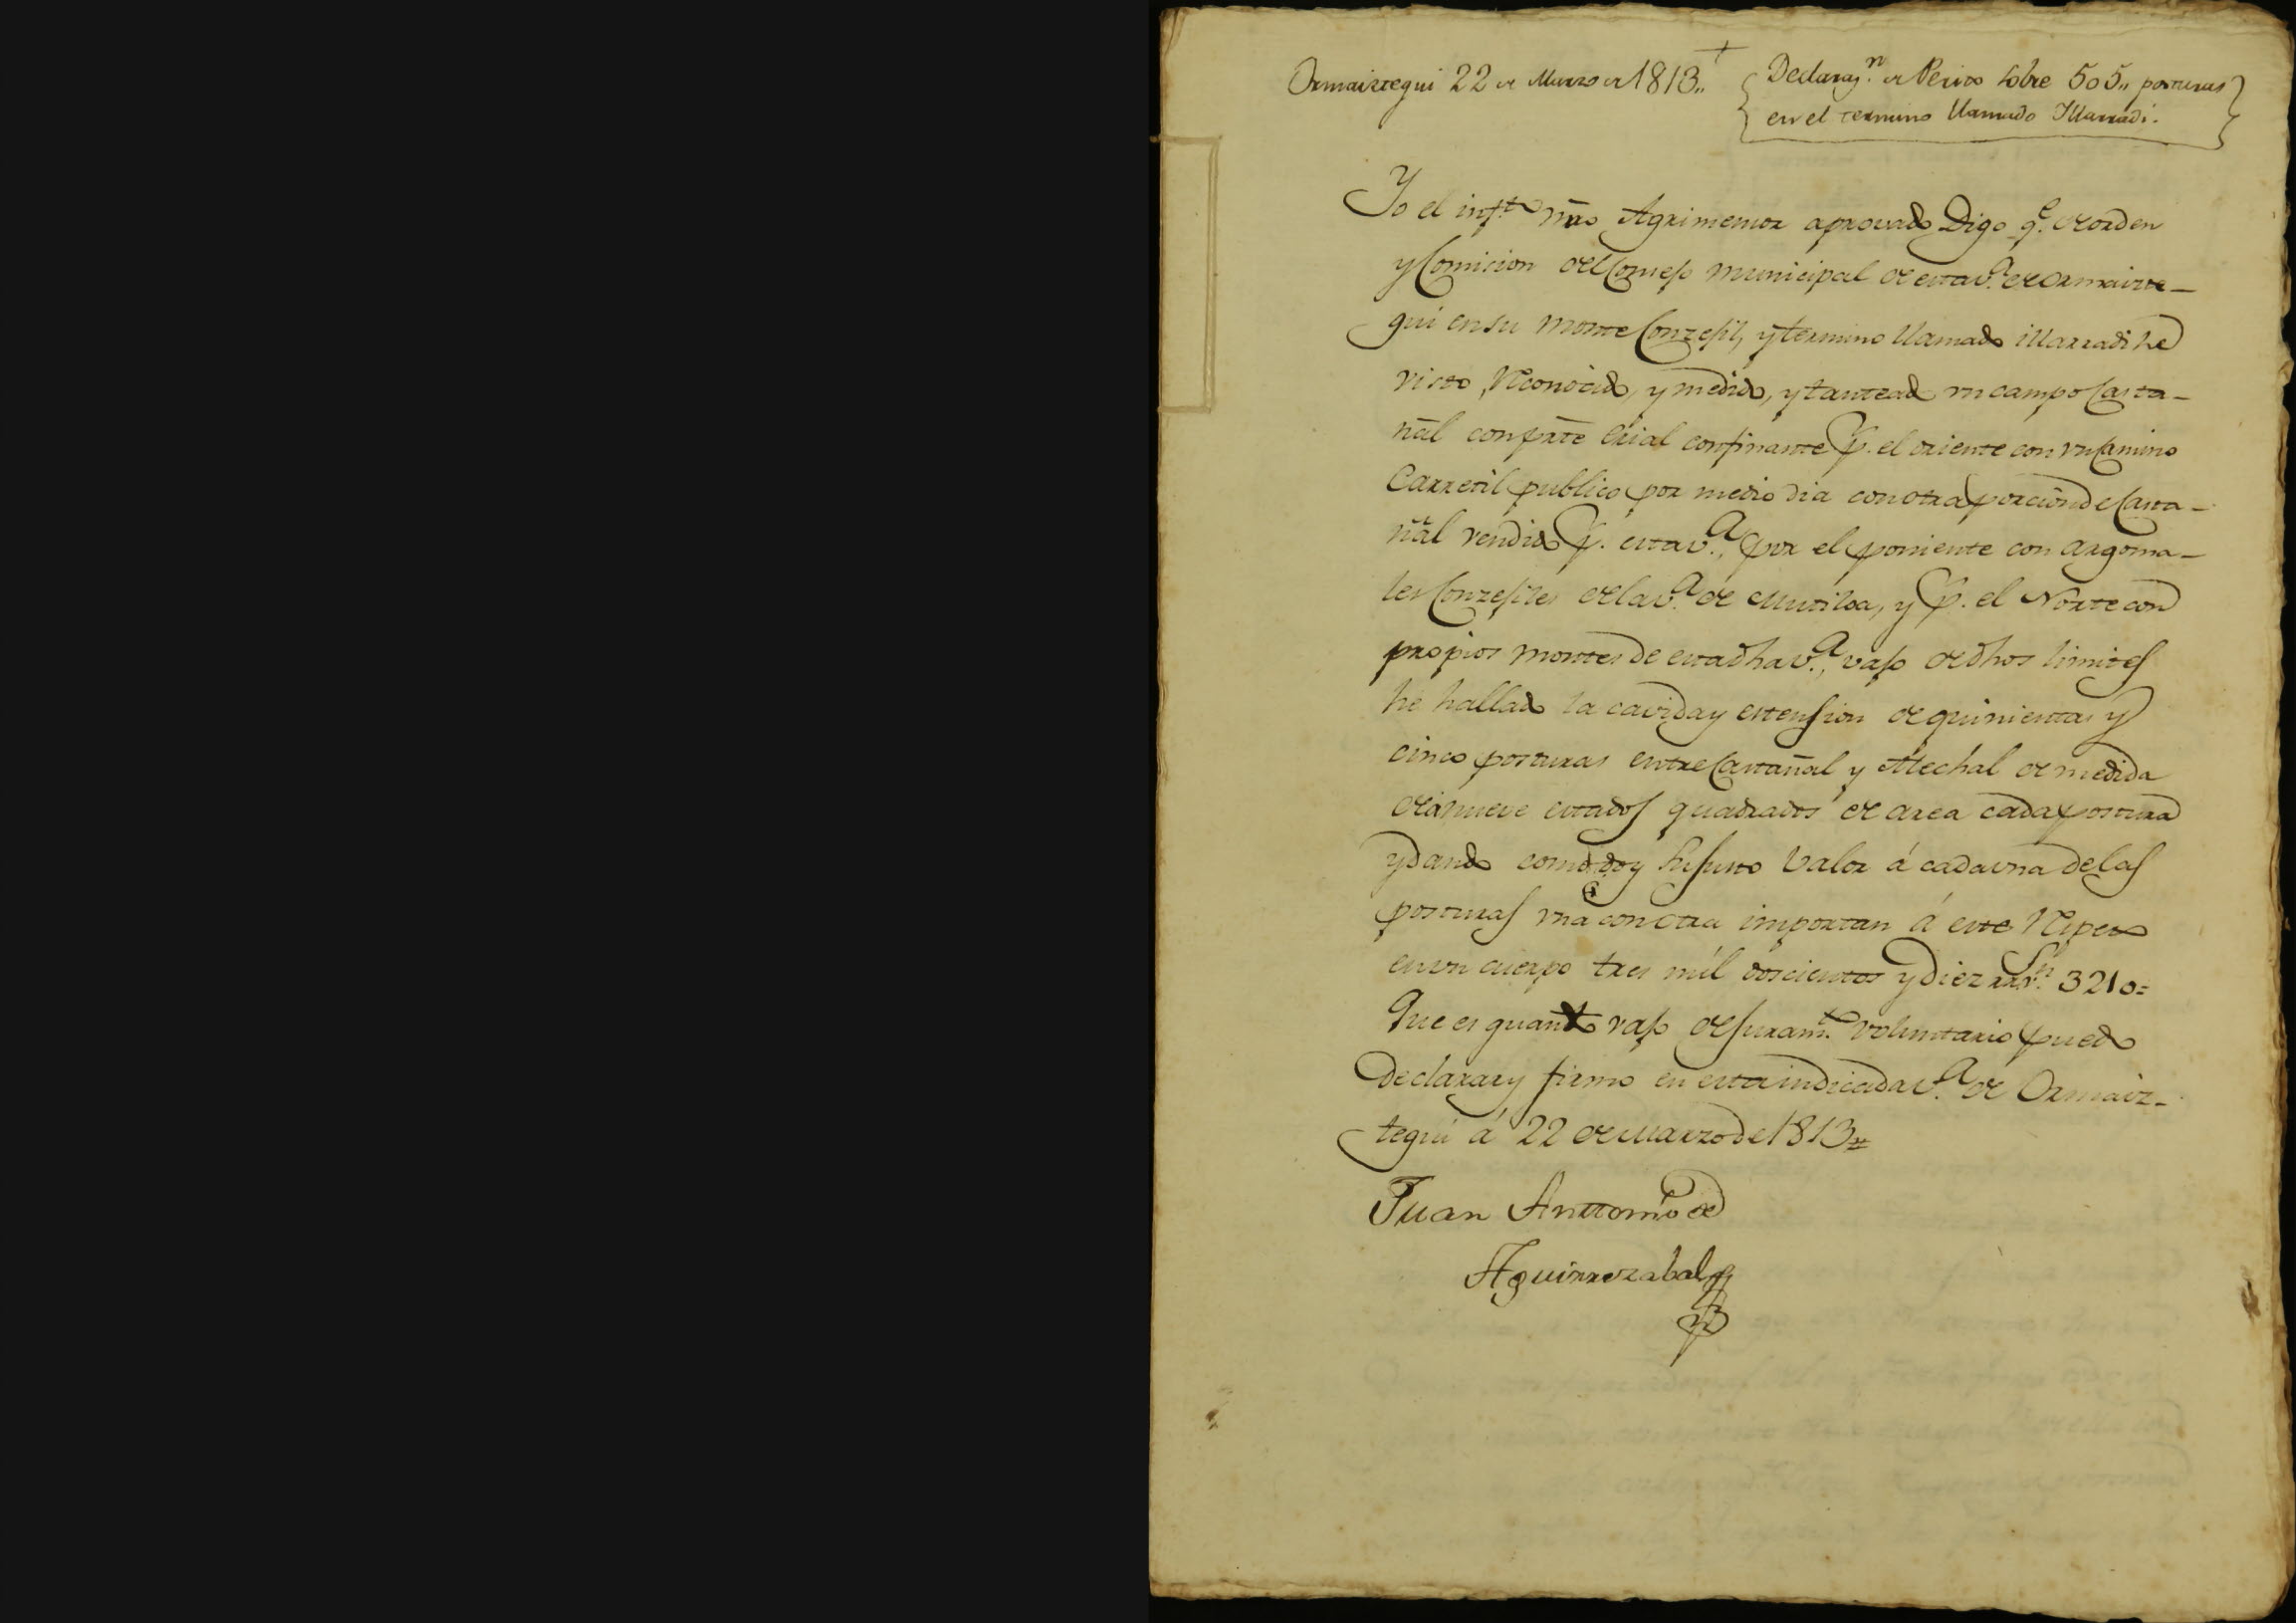 Ormaiztegui 22 de Marzo de 1813,,
Declaraz.n de Perito sobre 505,, posturas
en el termino llamado Yllarradi.
Yo el inf.to Mro Agrimensor aprovado Digo q.e de orden
y Comision del Consejo municipal de esta v.a de Ormaizte-
gui en su monte Conzejil, y termino llamado illarradi he
visto, Reconocido, y medido, y tanteado vn campo Casta-
ñal con parte erial confinante p. el oriente con vn Camino
Carretil publico por medio dia con otra porcion de Casta-
ñal vendido p. esta v.a, por el poniente con argoma-
les Conzejiles de la v.a de Mutiloa, y p. el Norte con
propios montes de esta dha v.a, vajo de dhos limites
he hallado la cavida y estension de quinientas y
cinco posturas entre Castañal y elechál de medida
de á nueve estados quadrados de area cada postura
y dando como doy su justo valor á cada vna de las
posturas vna con otra importan á este Respeto
en vn cuerpo tres mil doscientos y diez rr.s v.n 3210=
Que es quanto vajo de juram.to voluntario puedo
declarar y firmo en esta indicada v.a de Ormaiz-
tegui á 22 de Marzo de 1813=
Juan Anttonio de
Aguirrezabal